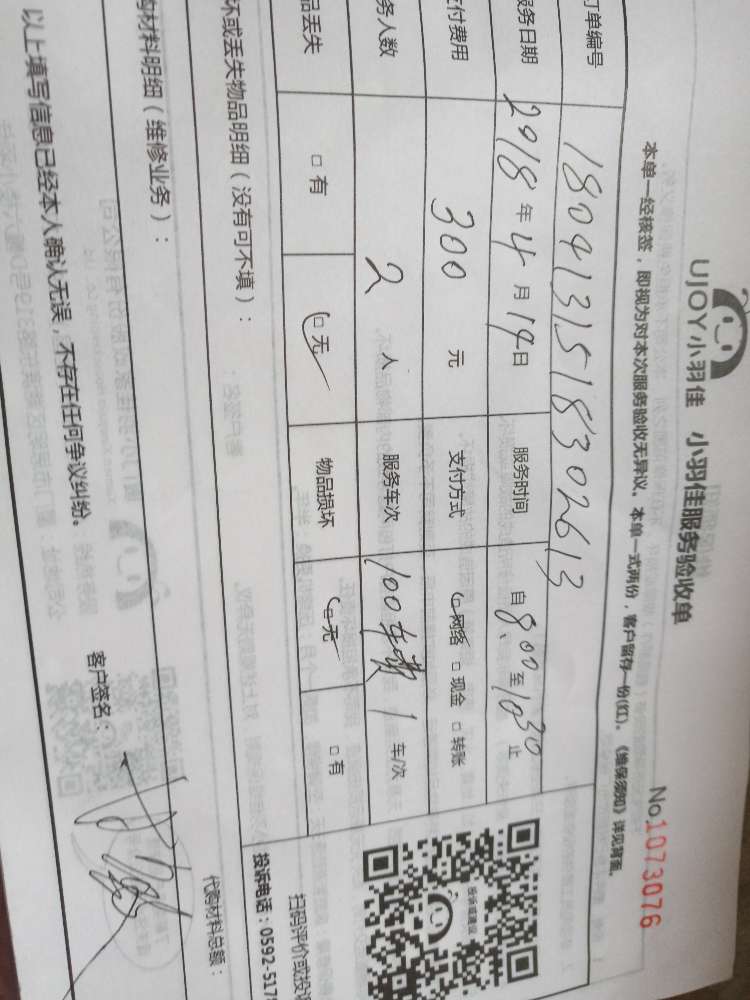 UJOY小羽佳 小羽佳服务验收单
No.1073076
本单一经核签，即视为对本次服务验收无异议。本单一式两份，客户留存一份(红)。《维保须知》详见背面。
订单编号 1804131518302613
服务日期 2018年4月14日 服务时间 自8:00至10:30止
支付费用 300元 支付方式 □网络 □现金 □转账
务人数 2人 服务车次 100车费 1车/次
品丢失 □有 □无 物品损坏 □无 □有
坏或丢失物品明细（没有可不填）：
投诉或建议
扫码评价或投诉
投诉电话：0592-517
购材料明细（维修业务）：
代购材料总额：
以上填写信息已经本人确认无误，不存在任何争议纠纷。
客户签名：